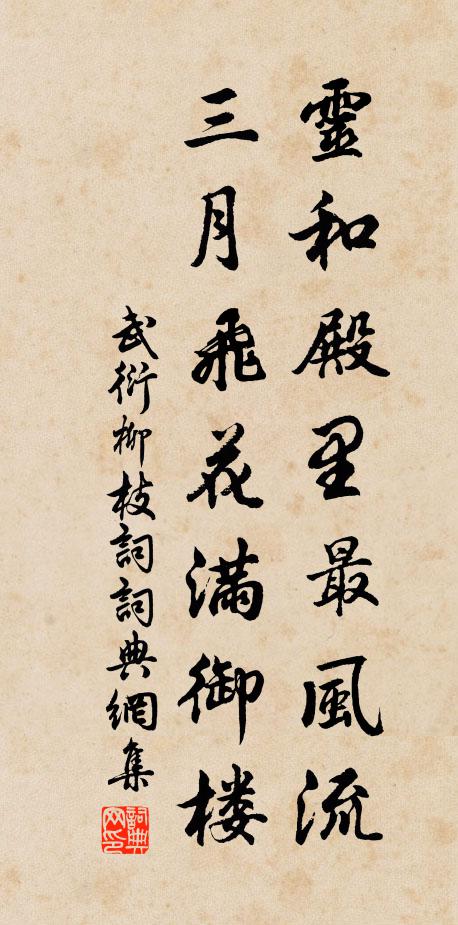 靈和殿里最風流
三月飛花滿御楼
武衍柳枝詞詞典網集
詞典网印